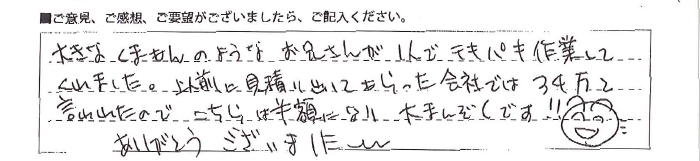 ■ご意見、ご感想、ご要望がございましたら、ご記入ください。
大きなくまさんのような お兄さんが 1人で テキパキ 作業して
くれました。以前に見積り出してもらった会社では 34万と
言われたので こちらは半額になり 大まんぞくです!!
ありがとう ございました